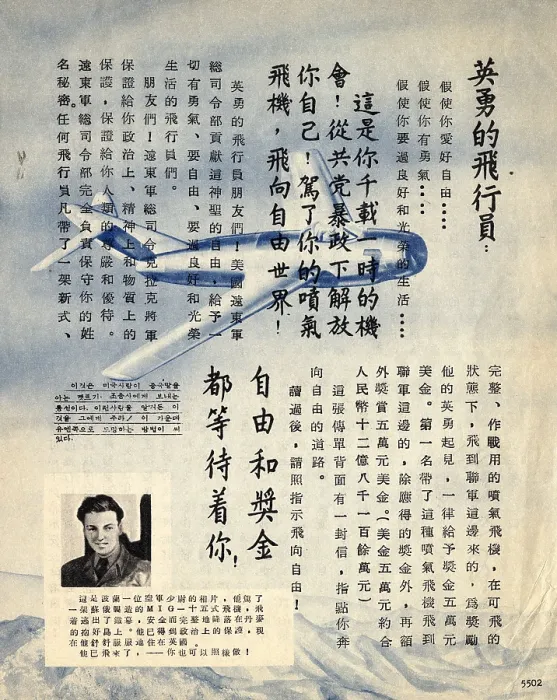 英勇的飛行員：
假使你愛好自由……
假使你有勇氣……
假使你要過良好和光榮的生活……
這是你千載一時的機
會！從共党暴政下解放
你自己！駕了你的噴氣
飛機，飛向自由世界！
英勇的飛行員朋友們！美國遠東軍
總司令部貢獻這神聖的自由，給予一
切有勇氣、要自由、要過良好和光榮
生活的飛行員們。
朋友們！遠東軍總司令克拉克將軍
保證給你政治上、精神上和物質上的
保護，保證給你人類的尊嚴和優待。
遠東軍總司令部完全負責保守你的姓
名秘密。任何飛行員凡帶了一架新式、
完整、作戰用的噴氣飛機，在可飛的
狀態下，飛到聯軍這邊來的，爲獎勵
他的英勇起見，一律給予獎金五萬元
美金。第一名帶了這種噴氣飛機飛到
聯軍這邊的，除應得的獎金外，再額
外獎賞五萬元美金。（美金五萬元約合
人民幣十二億八千一百餘萬元）
這張傳單背面有一封信，指點你奔
向自由的道路。
讀過後，請照指示飛向自由！
自由和獎金
都等待着你！
이것은 미국사람이 중국말을
아는 조종사에게 보내는
통신이다. 이런사람을 알거든 이
것을 그에게 주라!
유엔쪽으로 방법이 써
있다.
這是波蘭一位空軍少尉的相片，他駕了
一架蘇俄製造的MIG一十五式飛機，飛
着逃出了鐵幕，安全而完整地降落在丹麥
的抱好島上。他已得到政治上的保護，現
在他舒舒服服地住在英國。
他已飛來了，——你也可以照樣做！
5502